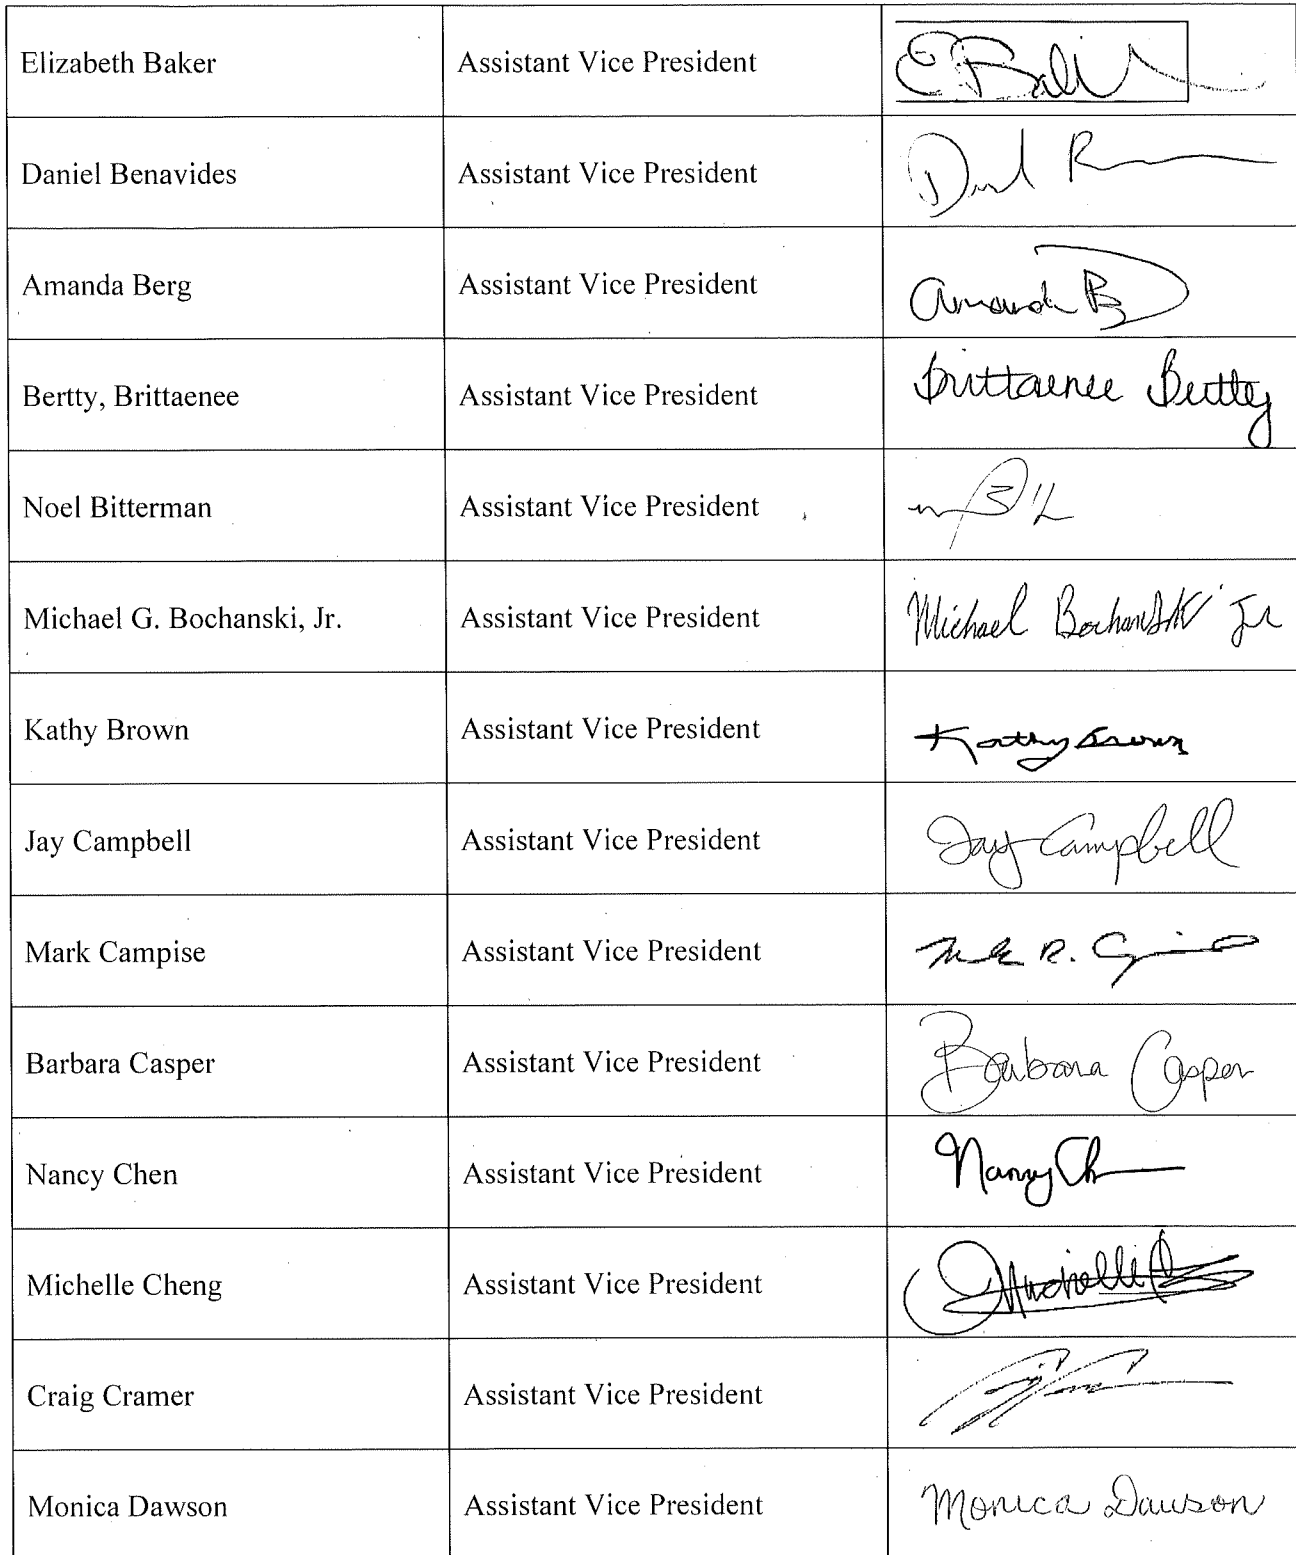 Elizabeth Baker Assistant Vice President
Daniel Benavides Assistant Vice President
Amanda Berg Assistant Vice President Amanda B
Bertty, Brittaenee Assistant Vice President Brittaenee Bertty
Noel Bitterman Assistant Vice President
Michael G. Bochanski, Jr. Assistant Vice President Michael Bochanski Jr
Kathy Brown Assistant Vice President Kathy Brown
Jay Campbell Assistant Vice President Jay Campbell
Mark Campise Assistant Vice President
Barbara Casper Assistant Vice President Barbara Casper
Nancy Chen Assistant Vice President Nancy Ch
Michelle Cheng Assistant Vice President Michelle
Craig Cramer Assistant Vice President
Monica Dawson Assistant Vice President Monica Dawson